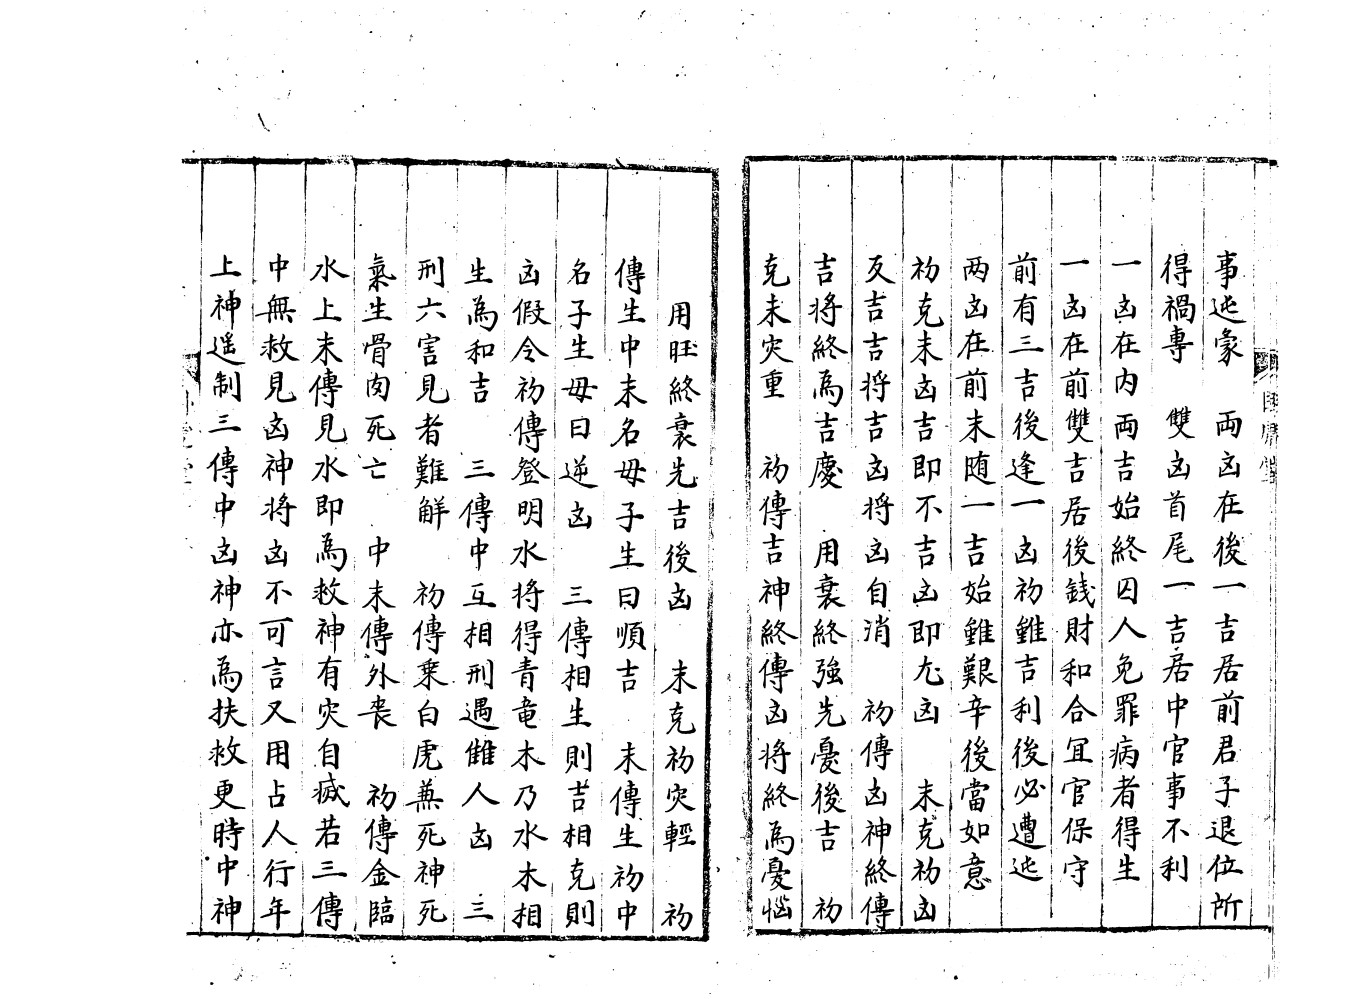 事迍蒙　両凶在後一吉居前君子退位所
得禍專　雙凶首尾一吉居中官事不利
一凶在内両吉始終囚人免罪病者得生
一凶在前雙吉居後錢財和合冝官保守
前有三吉後逢一凶初雖吉利後必遭迍
两凶在前末随一吉始雖艱辛後當如意
初克末凶吉即不吉凶即尢凶　末克初凶
反吉吉将吉凶将凶自消　初傳凶神終傳
吉将終爲吉慶　用衰終強先憂後吉　初
克末灾重　初傳吉神終傳凶将終爲憂惱
用旺終衰先吉後凶　末克初灾輕　初
傳生中末名母子生曰順吉　末傳生初中
名子生母曰逆凶　三傳相生則吉相克則
凶假令初傳登明水将得青竜木乃水木相
生爲和吉　三傳中互相刑遇雠人凶　三
刑六害見者難解　初傳乗白虎蕪死神死
氣生骨肉死亡　中末傳外丧　初傳金臨
水上末傳見水即爲救神有灾自滅若三傳
中無救見凶神将凶不可言又用占人行年
上神遥制三傳中凶神亦爲扶救更時中神